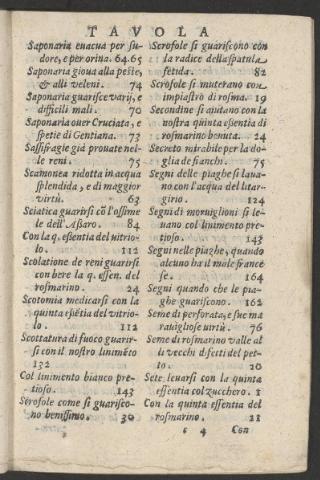 TAVOLA
Saponaria euacua per su-
dore, e per orina. 64.65
Saponaria gioua alla peste,
& alli veleni. 74
Saponaria guarisce varij, e
difficili mali. 70
Saponaria ouer Cruciata, e
spetie di Gentiana. 73
Sassifragie già prouate nel-
le reni. 75
Scamonea ridotta in acqua
splendida, e di maggior
virtù. 63
Sciatica guarirsi cō l'ossime
le dell' Assaro. 84
Con la q. essentia del vitrio-
lo. 112
Scolatione de reni guarirsi
con bere la q. essen. del
rosmarino. 24
Scotomia medicarsi con la
quinta essētia del vitrio-
lo. 112
Scottatura di fuoco guarir-
si con il nostro linimēto
132
Col linimento bianco pre-
tioso. 143
Scrofole come si guarisco-
no benissimo. 30
Scrofole si guariscono con
la radice della spatula
fetida. 82
Scrofole si muterano con
impiastro di rosma. 19
Secondine si aiutano con la
nostra quinta essentia di
rosmarino beuuta. 24
Secreto mirabile per la do-
glia de fianchi. 75
Segni delle piaghe si laua-
no con l'acqua del litar-
girio. 124
Segni di moruiglioni si le-
uano col linimento pre-
tioso. 143
Segni nelle piaghe, quando
alcuno ha il male france
se. 164
Segni quando che le pia-
ghe guariscono. 162
Seme di perforata, e sue ma
rauigliose uirtù. 76
Seme di rosmarino valle al
li vecchi difetti del pet-
to. 20
Sete leuarsi con la quinta
essentia col zucchero. 1
Con la quinta essentia del
rosmarino. 21
c 4 Con